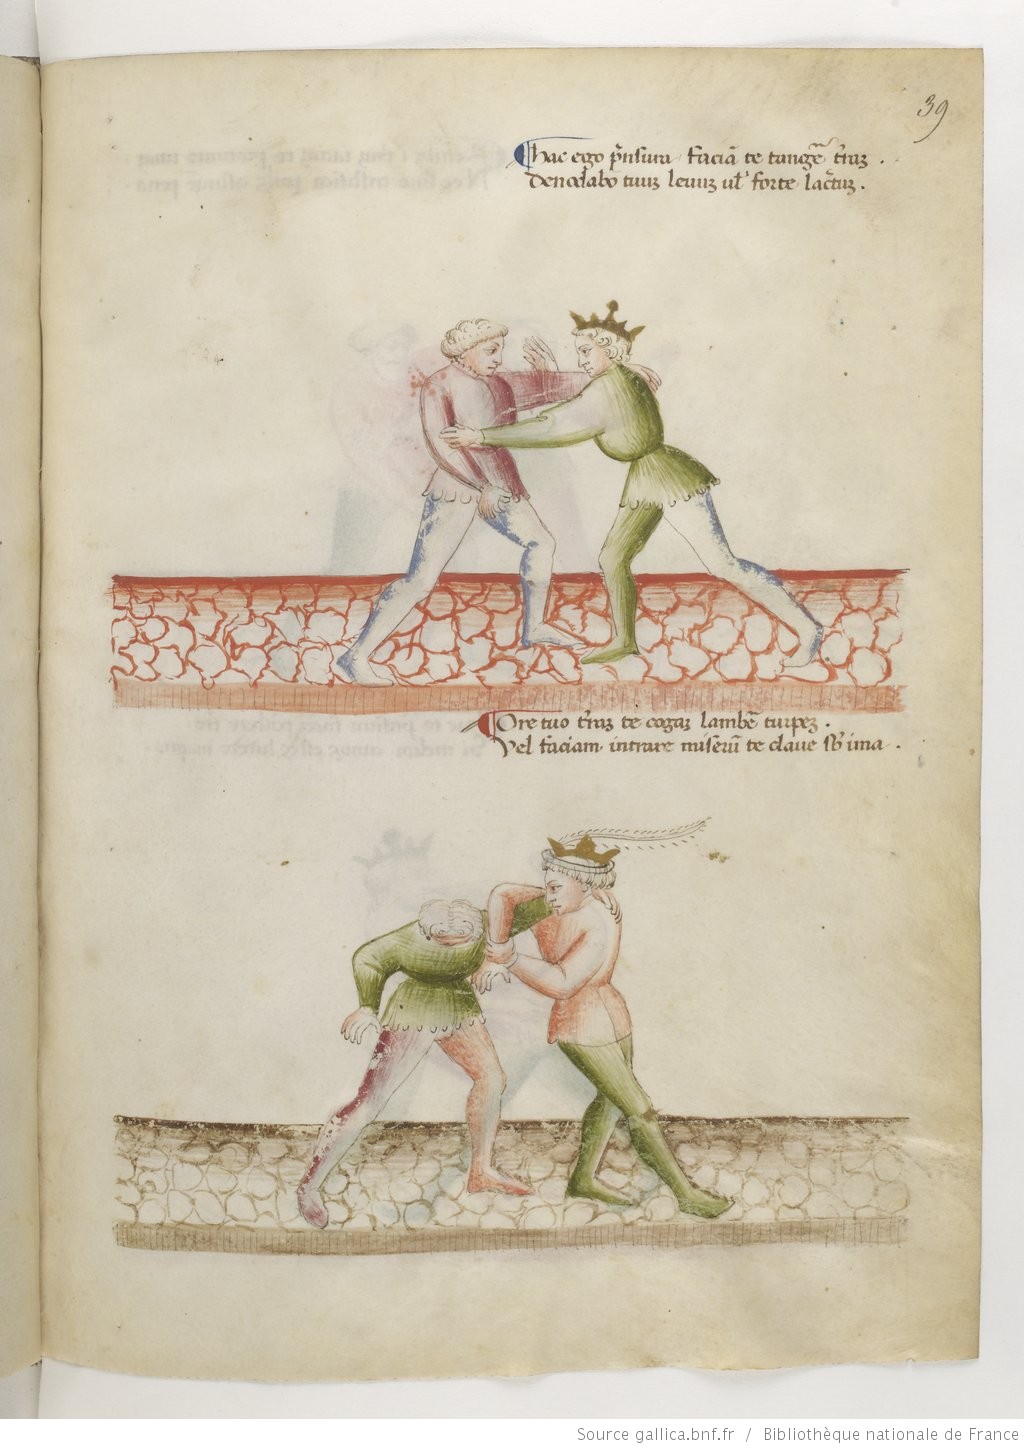 39
Hac ego prensura faciam te tangere terram .
Denodabo tuum levum vel forte lacertum .
Ore tuo terram te cogam lambere turpem .
Vel faciam intrare miserum te clave sub ima .
Source gallica.bnf.fr / Bibliothèque nationale de France